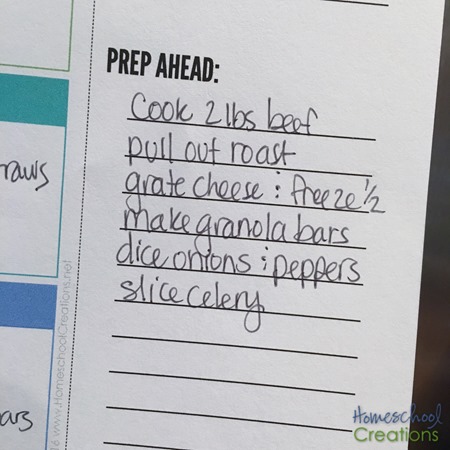 PREP AHEAD:
Cook 2 lbs beef
pull out roast
grate cheese & freeze 1/2
make granola bars
dice onions & peppers
slice celery
www.HomeschoolCreations.net
Homeschool
Creations